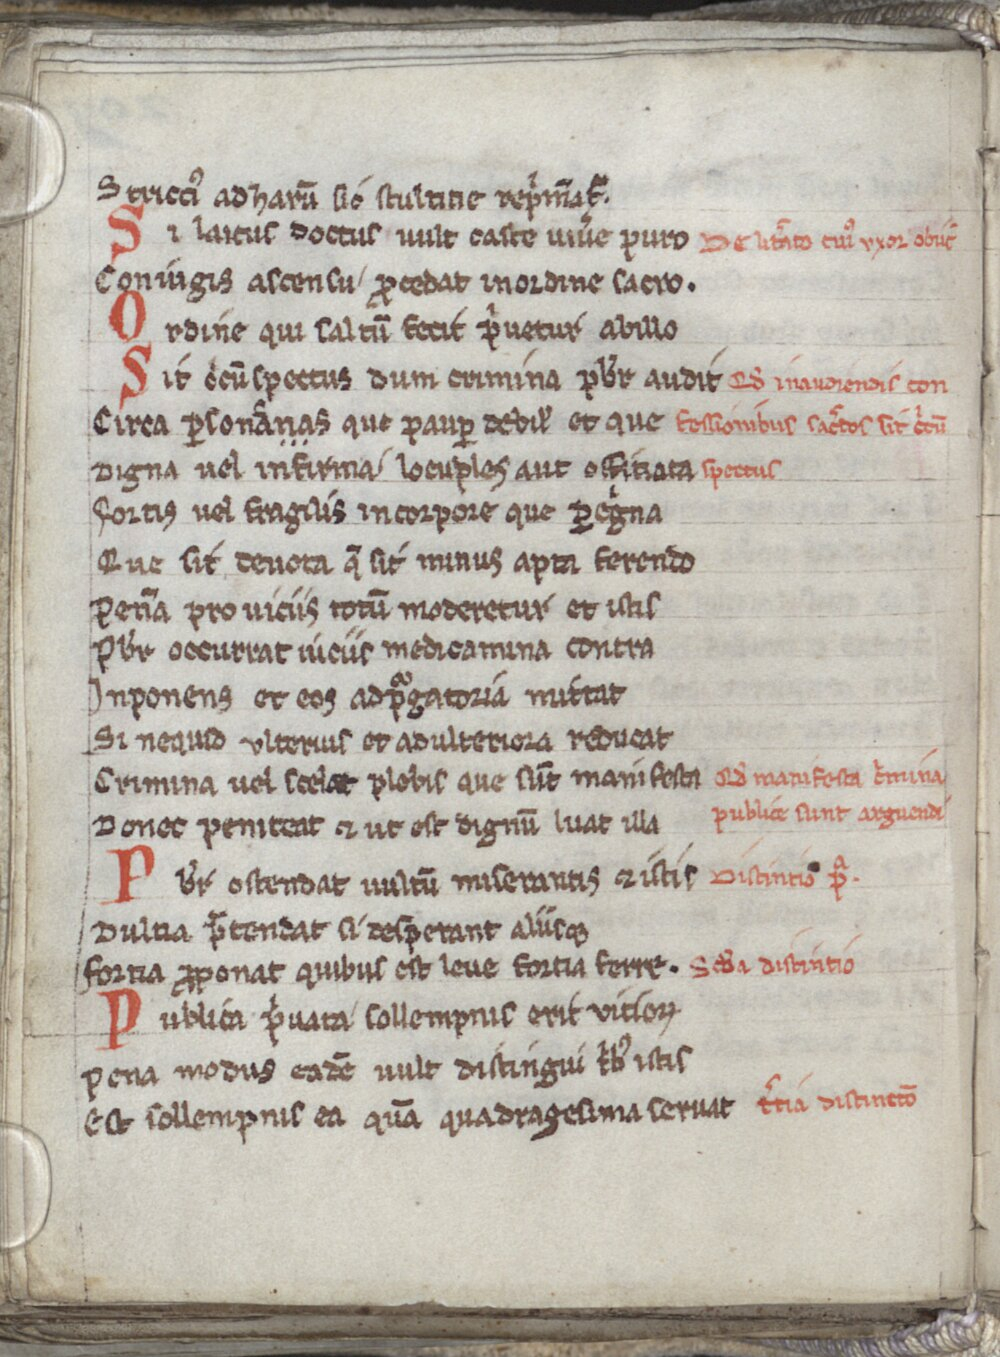 Stricti᷒ ad harū sic̄ stultitie rep̍mat᷑.
Si laicus doctus uult caste uiu̾e puro De litr̄ato cui᷒ vxor obiic̄
Coniugis ascensu ꝓcedat in ordine sacro.
Ordine qui saltū fecit p̍uetur ab illo
Sit c̍cūspectus dum crimina pb̄r audit Qd̄ in audiendis con
Circa ꝑsonas que paupꝑ debil̄ et que fessionibus sac̄dos sit c̍cū
Digna uel infirma locuples aut offitiata spectus
Fortis uel fragilis in corpore que p̄gna
Que sit deuota q̄ sit minus apta ferendo
Penā pro uiciis totū moderetur et istis
Pb̄r occurrat uiciis medicamina contra
Inponens et eos ad purgatoria mittat
Si nequid vlterius et ad ulteriora reducat
Crimina uel scelera plebis que sūt manifesta Qd̄ manifesta c̍mina
Donec peniteat ⁊ ut est dignū luat illa publice sunt arguendi
Pb̄r ostendat uultū miserantis ⁊ istis Distinctio p̄ᵃ.
Dultia p̄tendat si desperant aliisqꝫ
Fortia ꝓponat quibus est leue fortia ferre. Sc̄da distintio
Publica p̍uata sollempnis erit vitioꝝ
Pena modus eadē uult distingui t̍b᷒ istis
Est sollempnis ea quā quadragesima seruat t̄tia distinctō